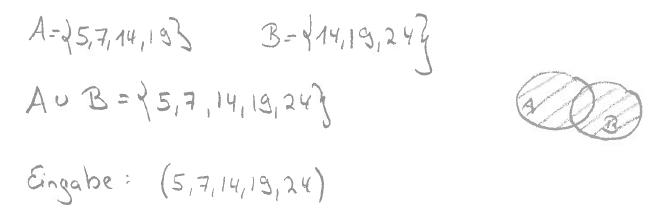 A={5,7,14,19} B={14,19,24}
A∪B={5,7,14,19,24}
A B
Eingabe: (5,7,14,19,24)